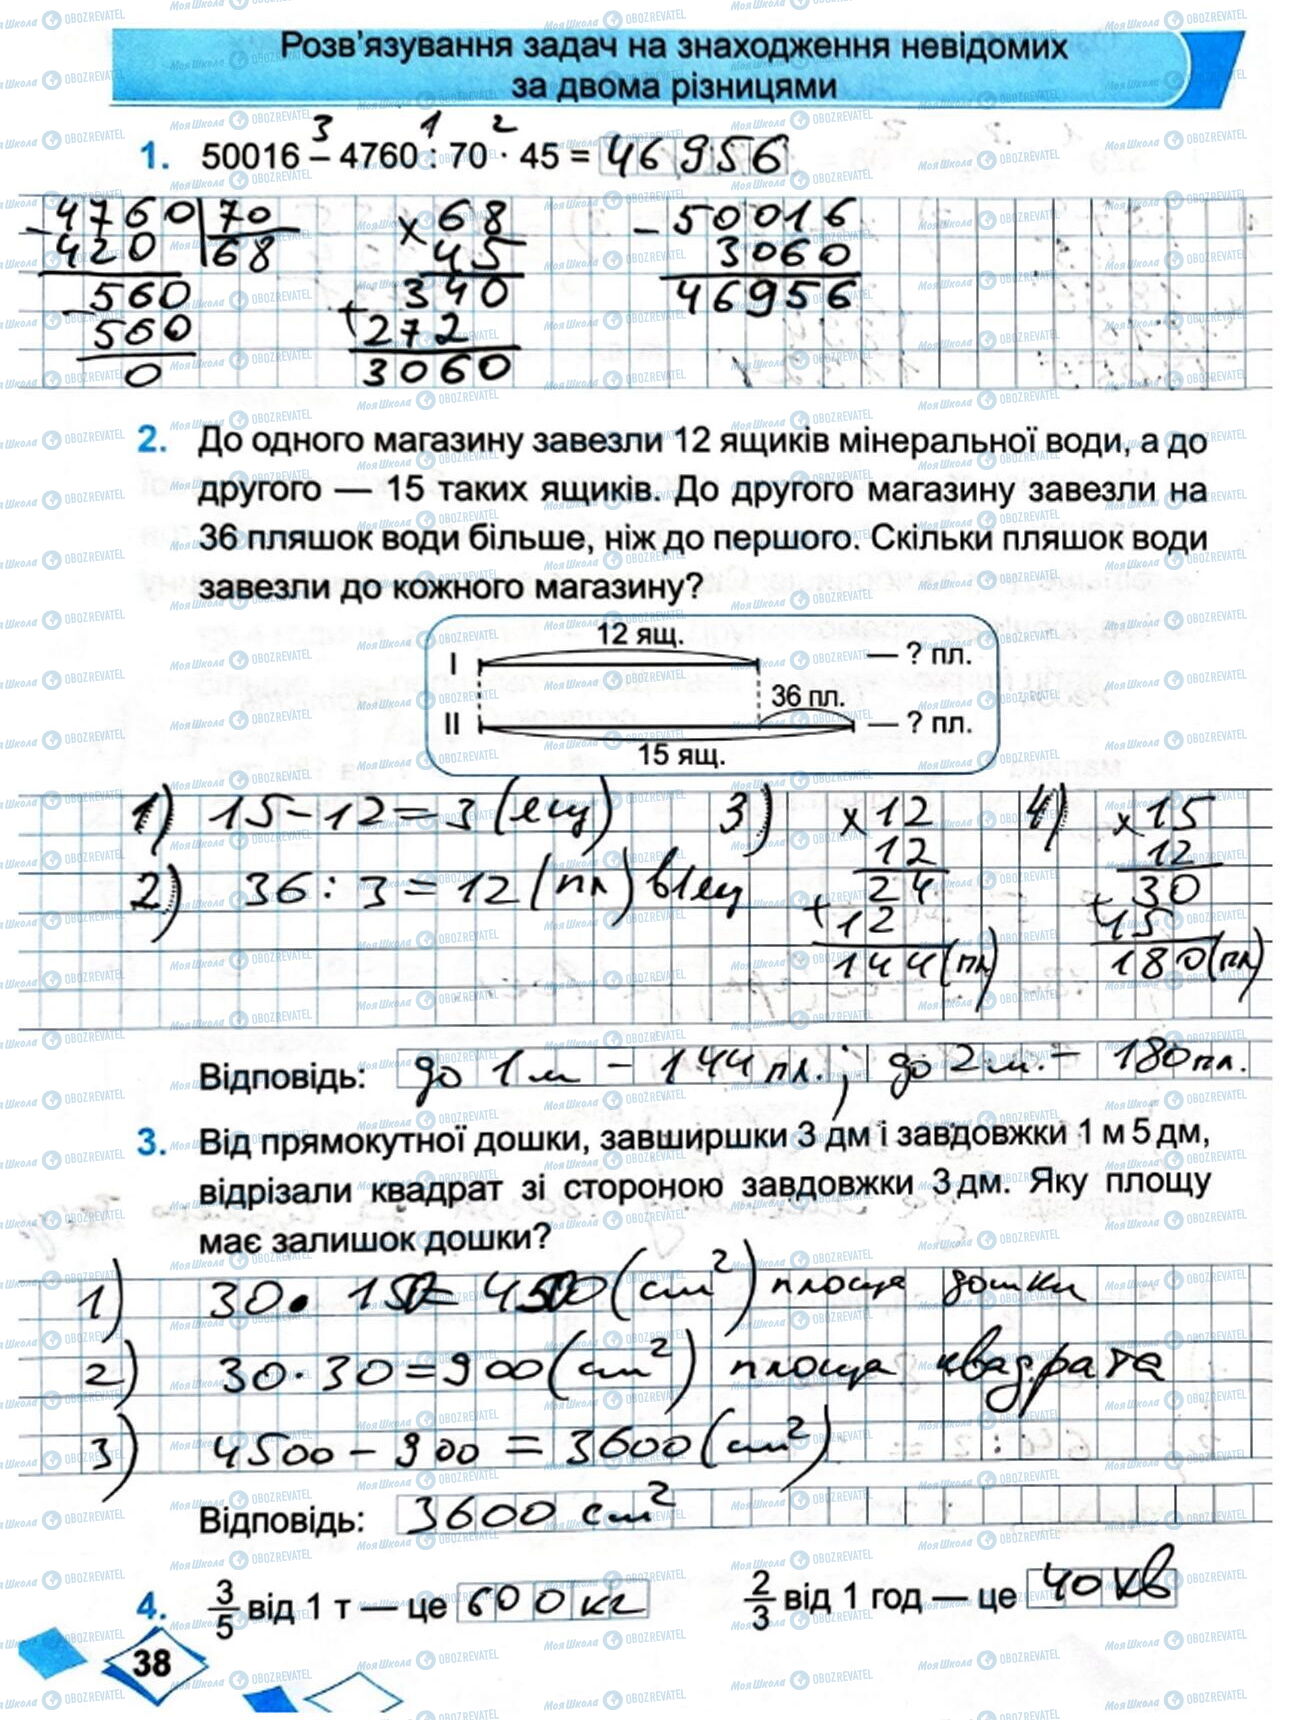 Розв'язування задач на знаходження невідомих
за двома різницями
3 1 2
1. 50016 – 4760 : 70 · 45 = 46956
– 4760 | 70 × 68 – 50016
420 | 68 45 3060
– 560 340 46956
560 + 272
0 3060
2. До одного магазину завезли 12 ящиків мінеральної води, а до
другого — 15 таких ящиків. До другого магазину завезли на
36 пляшок води більше, ніж до першого. Скільки пляшок води
завезли до кожного магазину?
12 ящ.
I — ? пл.
36 пл.
II — ? пл.
15 ящ.
1) 15 – 12 = 3 (ящ) 3) × 12 4) × 15
12 12
2) 36 : 3 = 12 (пл) в 1 ящ 24 30
+ 12 + 15
144 (пл) 180 (пл)
Відповідь: до 1 м – 144 пл.; до 2 м. – 180 пл.
3. Від прямокутної дошки, завширшки 3 дм і завдовжки 1 м 5 дм,
відрізали квадрат зі стороною завдовжки 3 дм. Яку площу
має залишок дошки?
1) 30 · 150 = 4500 (см²) площа дошки
2) 30 · 30 = 900 (см²) площа квадрата
3) 4500 – 900 = 3600 (см²)
Відповідь: 3600 см²
4. 3/5 від 1 т — це 600 кг 2/3 від 1 год — це 40 хв
38
МояШкола OBOZREVATEL